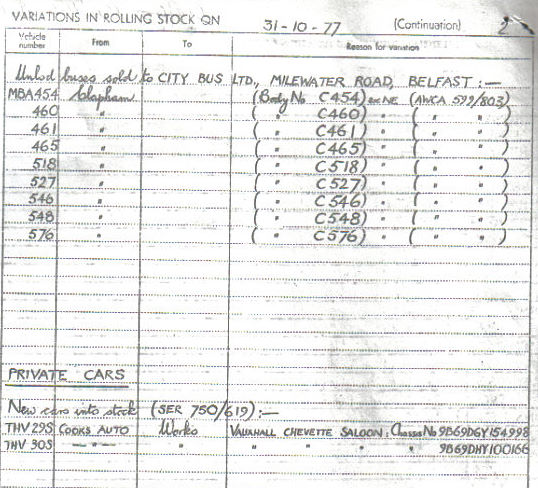 VARIATIONS IN ROLLING STOCK ON 31-10-77 (Continuation) 2
Vehicle number From To Reason for variation
Unlsd buses sold to CITY BUS LTD., MILEWATER ROAD, BELFAST :—
MBA454 Clapham (Body No C454) ex NE (AWCA 599/803)
460 " ( " C460) " ( " " )
461 " ( " C461) " ( " " )
465 " ( " C465) " ( " " )
518 " ( " C518) " ( " " )
527 " ( " C527) " ( " " )
546 " ( " C546) " ( " " )
548 " ( " C548) " ( " " )
576 " ( " C576) " ( " " )
PRIVATE CARS
New cars into stock (SER 750/619) :—
THV 29S COOKS AUTO Works VAUXHALL CHEVETTE SALOON. Chassis No 9B69DGY154998
THV 30S —"— " " " " 9B69DHY100166